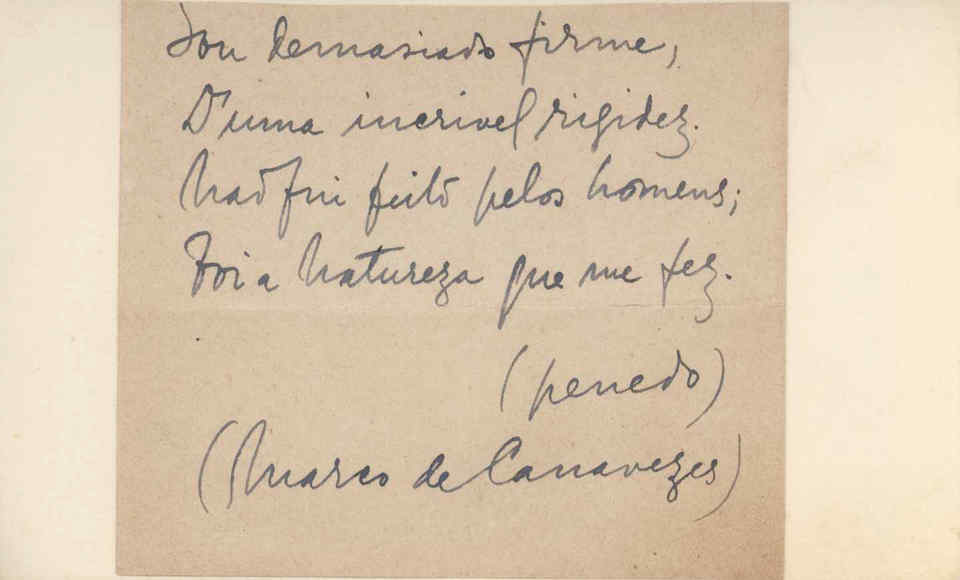 Sou demasiado firme,
D'uma incrivel rigidez.
Não fui feito pelos homens;
Foi a Natureza que me fez.
(penedo)
(Marco de Canavezes)